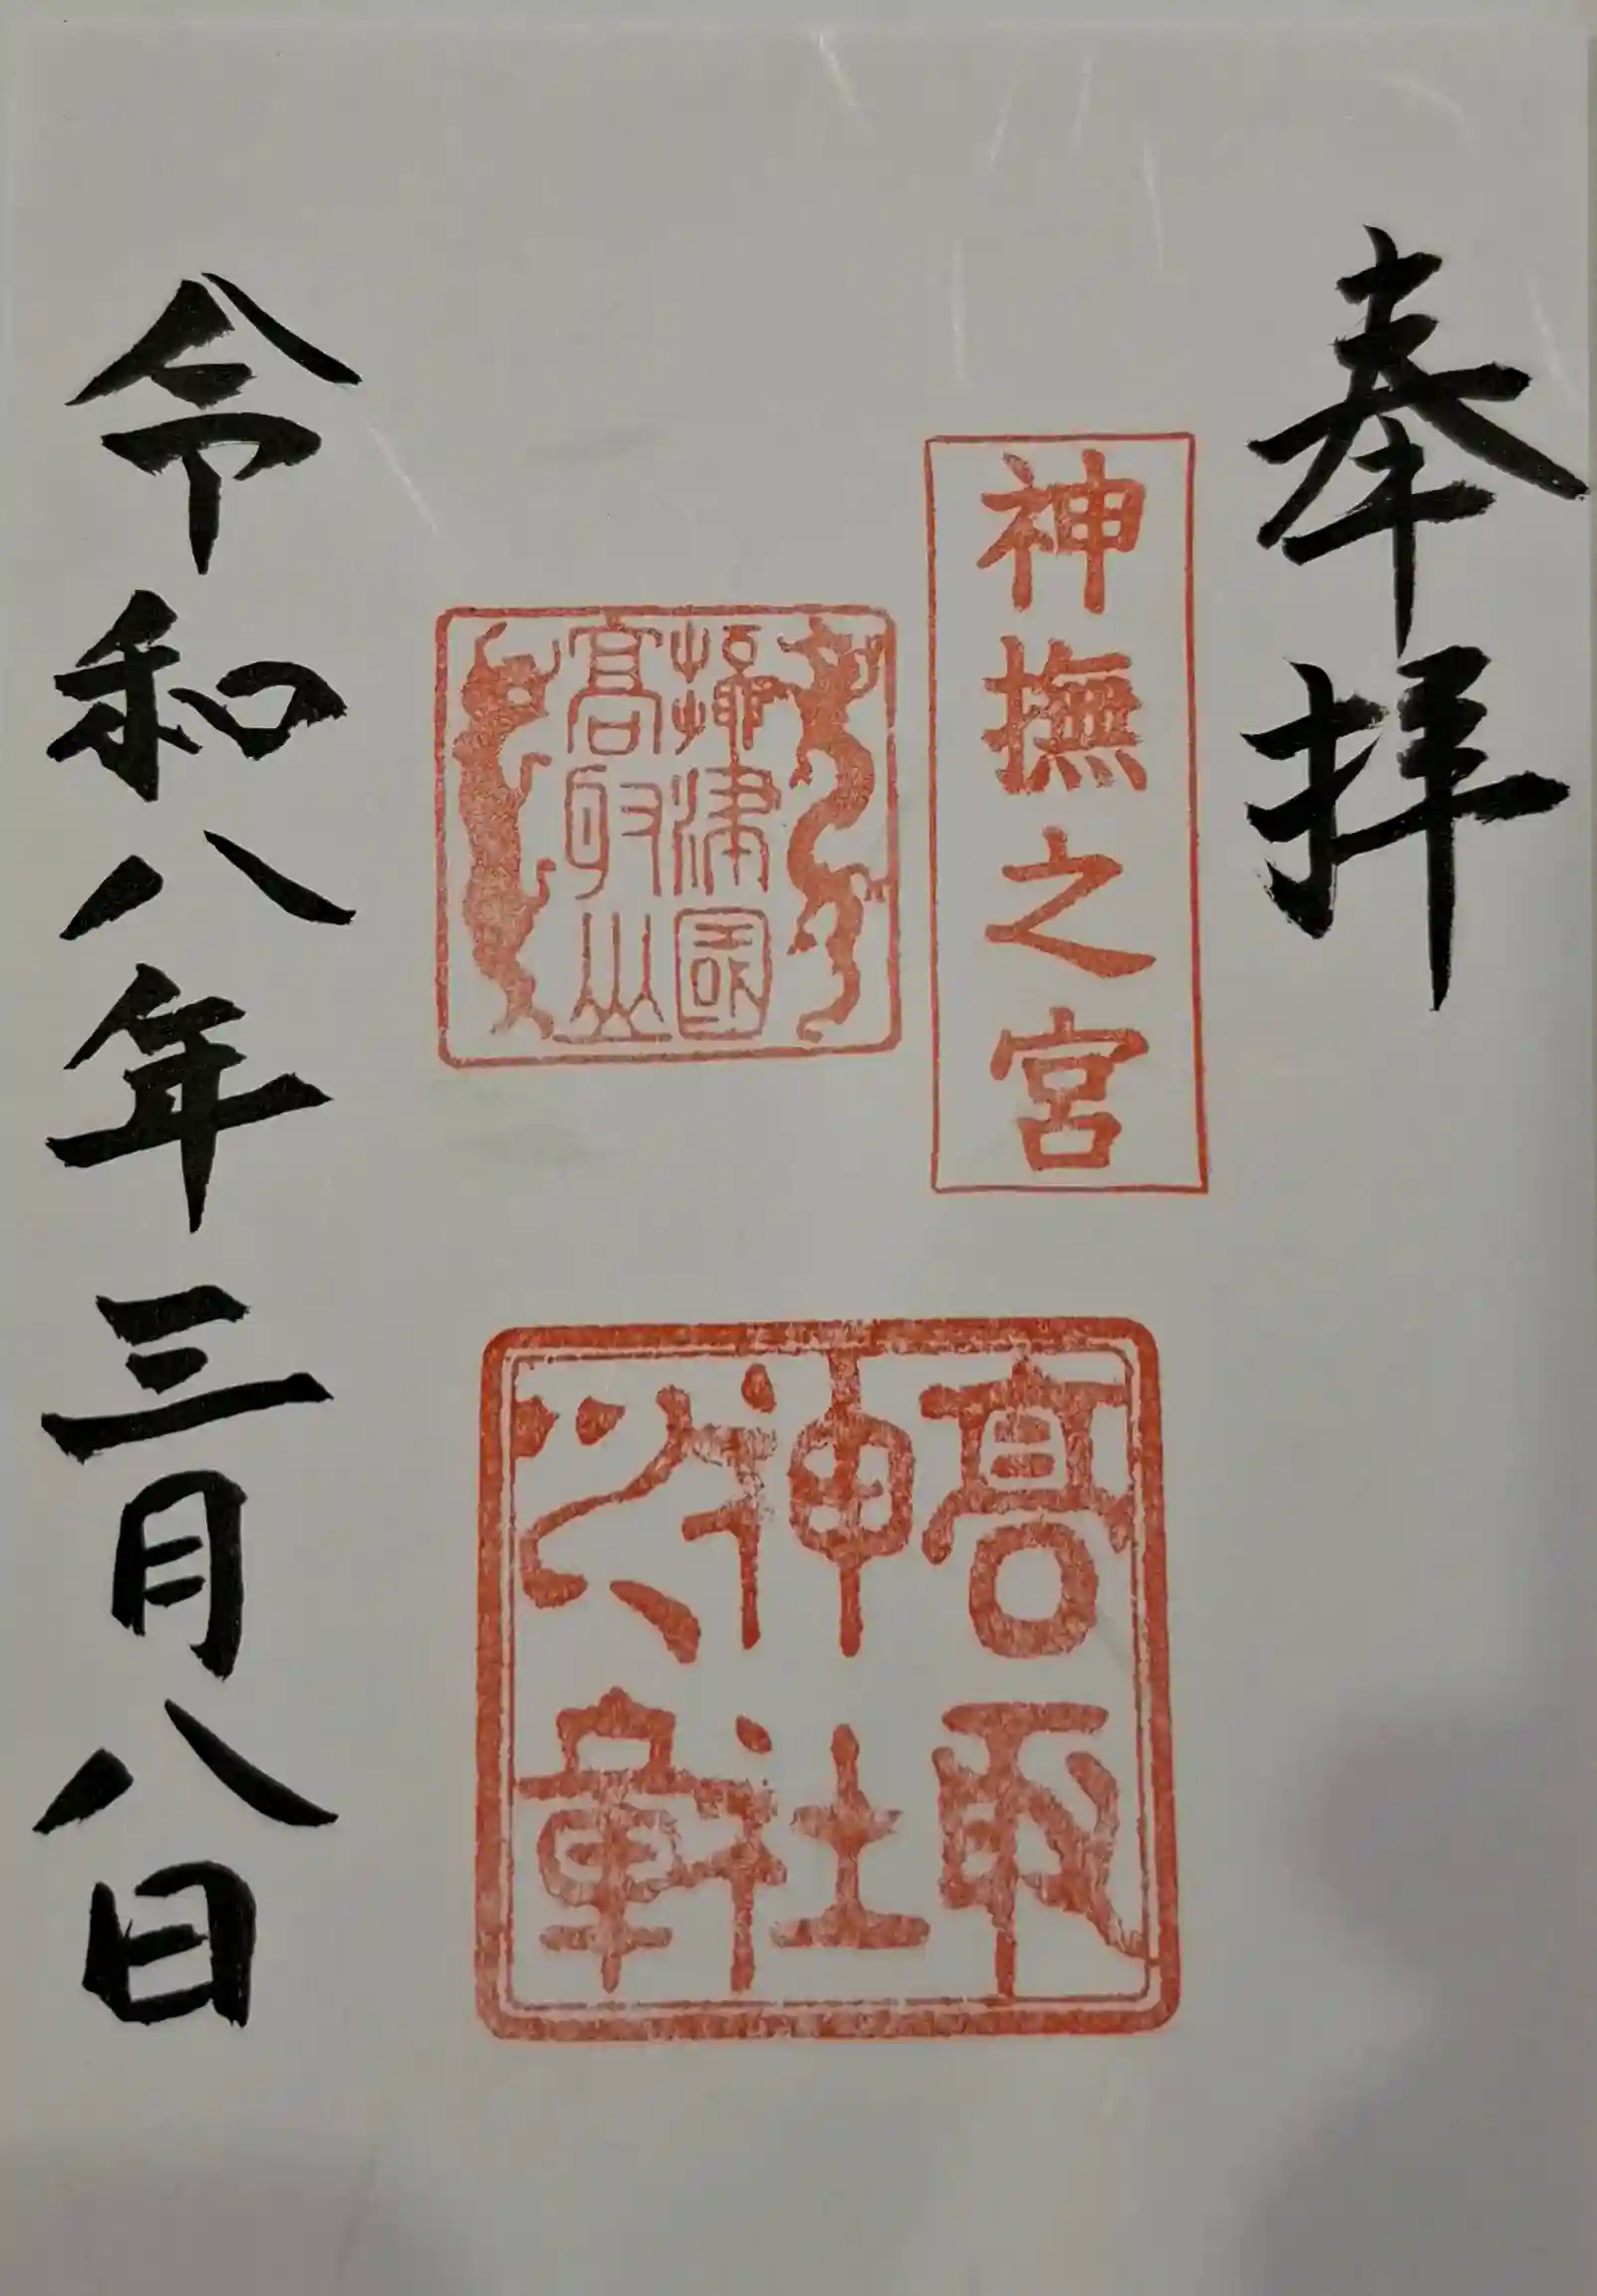 奉拝
神撫之宮
摂津國
高取山
高取
神社
之章
令和八年三月八日